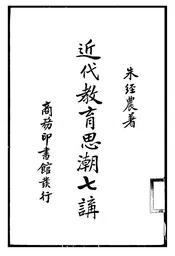 朱經農著
近代教育思潮七講
商務印書館發行